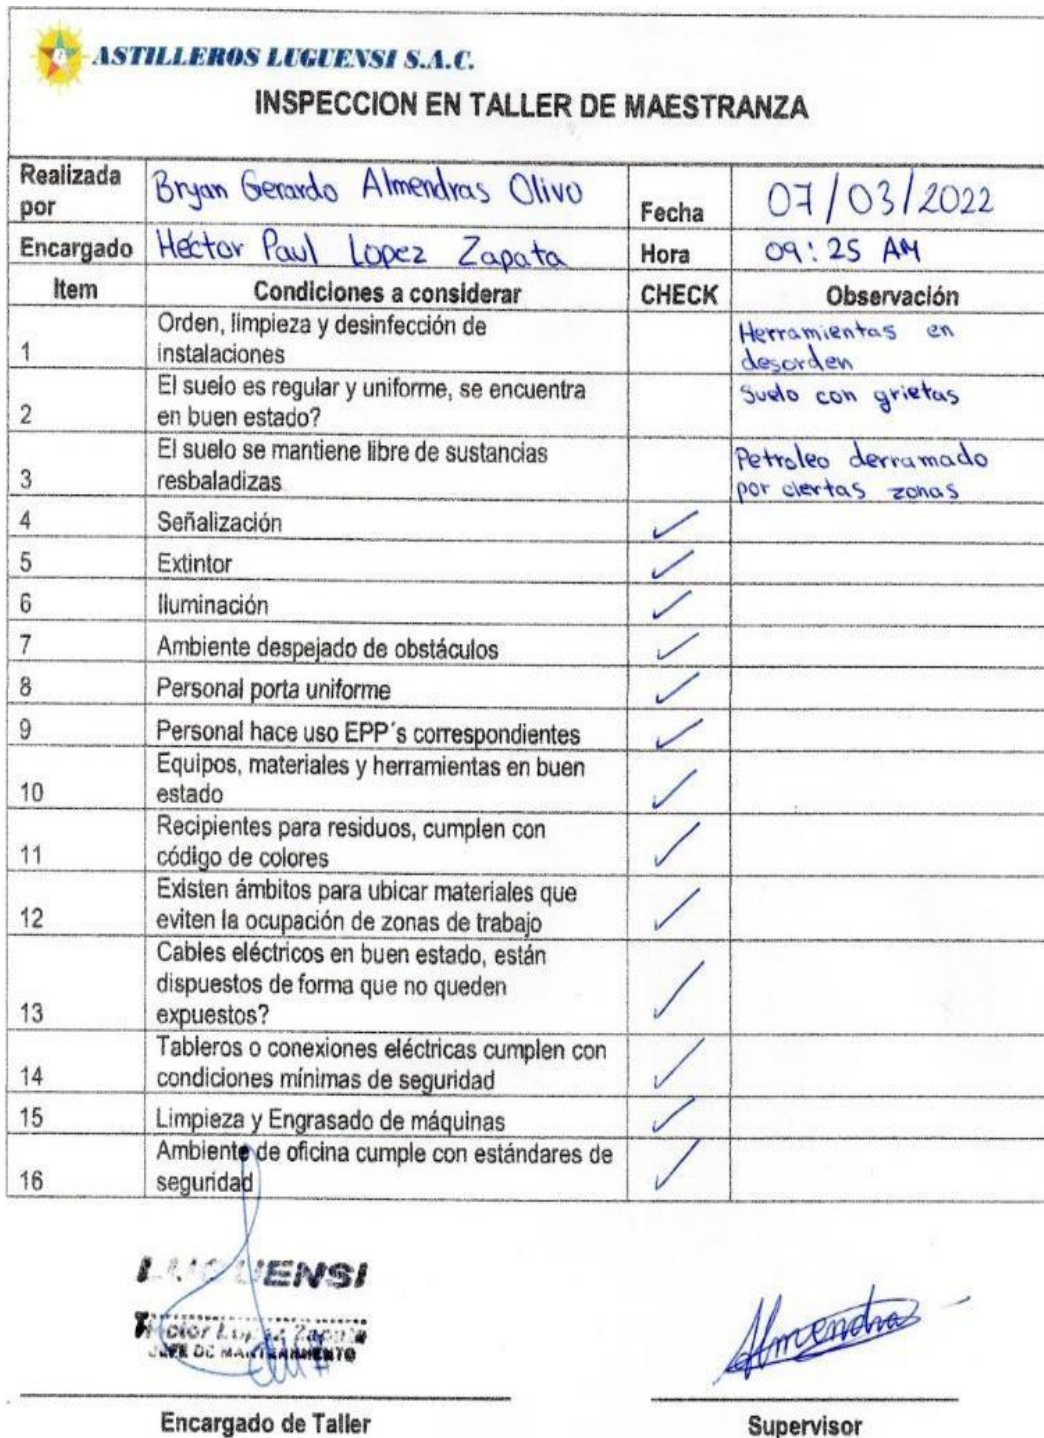 ASTILLEROS LUGUENSI S.A.C.
INSPECCION EN TALLER DE MAESTRANZA
Realizada por Bryan Gerardo Almendras Olivo Fecha 07/03/2022
Encargado Héctor Paul Lopez Zapata Hora 09:25 AM
Item Condiciones a considerar CHECK Observación
1 Orden, limpieza y desinfección de instalaciones Herramientas en desorden
2 El suelo es regular y uniforme, se encuentra en buen estado? Suelo con grietas
3 El suelo se mantiene libre de sustancias resbaladizas Petroleo derramado por ciertas zonas
4 Señalización ✓
5 Extintor ✓
6 Iluminación ✓
7 Ambiente despejado de obstáculos ✓
8 Personal porta uniforme ✓
9 Personal hace uso EPP´s correspondientes ✓
10 Equipos, materiales y herramientas en buen estado ✓
11 Recipientes para residuos, cumplen con código de colores ✓
12 Existen ámbitos para ubicar materiales que eviten la ocupación de zonas de trabajo ✓
13 Cables eléctricos en buen estado, están dispuestos de forma que no queden expuestos? ✓
14 Tableros o conexiones eléctricas cumplen con condiciones mínimas de seguridad ✓
15 Limpieza y Engrasado de máquinas ✓
16 Ambiente de oficina cumple con estándares de seguridad ✓
LUGUENSI
Hector Lopez Zapata
JEFE DE MANTENIMIENTO
Almendras
Encargado de Taller
Supervisor